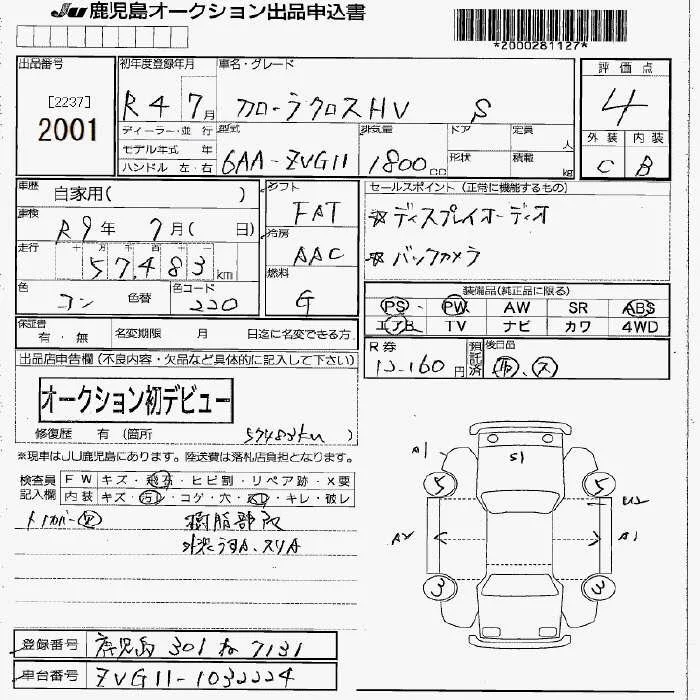 JU 鹿児島オークション出品申込書
*2000281127*
出品番号 初年度登録年月 車名・グレード 評価点
[2237]
2001
R4 7月 カローラクロスHV S 4
ディーラー・並行 型式 排気量 ドア 定員 人 外装 内装
モデル年式 年
ハンドル 左・右 6AA-ZVG11 1800cc 形状 積載 kg C B
車歴 自家用( ) シフト FAT セールスポイント (正常に機能するもの)
車検 R9年 7月( 日) ディスプレイオーディオ
冷房 AAC
走行 十万千百十一 バックカメラ
57,483km 燃料 G
色 コン 色替 色コード 220 装備品(純正品に限る)
PS PW AW SR ABS
エアB TV ナビ カワ 4WD
保証書 有・無 名変期限 月 日迄に名変できる方.
出品店申告欄 (不良内容・欠品など具体的に記入して下さい)
R券 円 預託済 後日品
オークション初デビュー
修復歴 有 (箇所 57483km )
※現車はJU鹿児島にあります。陸送費は落札店負担となります。
検査員記入欄 FW キズ・飛石・ヒビ割・リペア跡・X要
内装 キズ・・コゲ・穴・・キレ・破レ
樹脂部
外装うすA、スリA
S1
A1
5 5
A2 A1
3 3
登録番号 鹿児島 301 ね 7131
車台番号 ZVG11-1032224